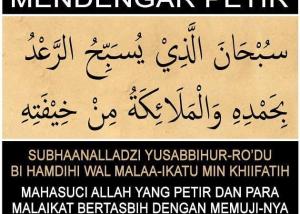 MENDENGAR PETIR
سُبْحَانَ الَّذِيْ يُسَبِّحُ الرَّعْدُ
بِحَمْدِهِ وَالْمَلَائِكَةُ مِنْ خِيْفَتِهِ
SUBHAANALLADZI YUSABBIHUR-RO'DU
BI HAMDIHI WAL MALAA-IKATU MIN KHIIFATIH
MAHASUCI ALLAH YANG PETIR DAN PARA
MALAIKAT BERTASBIH DENGAN MEMUJI-NYA